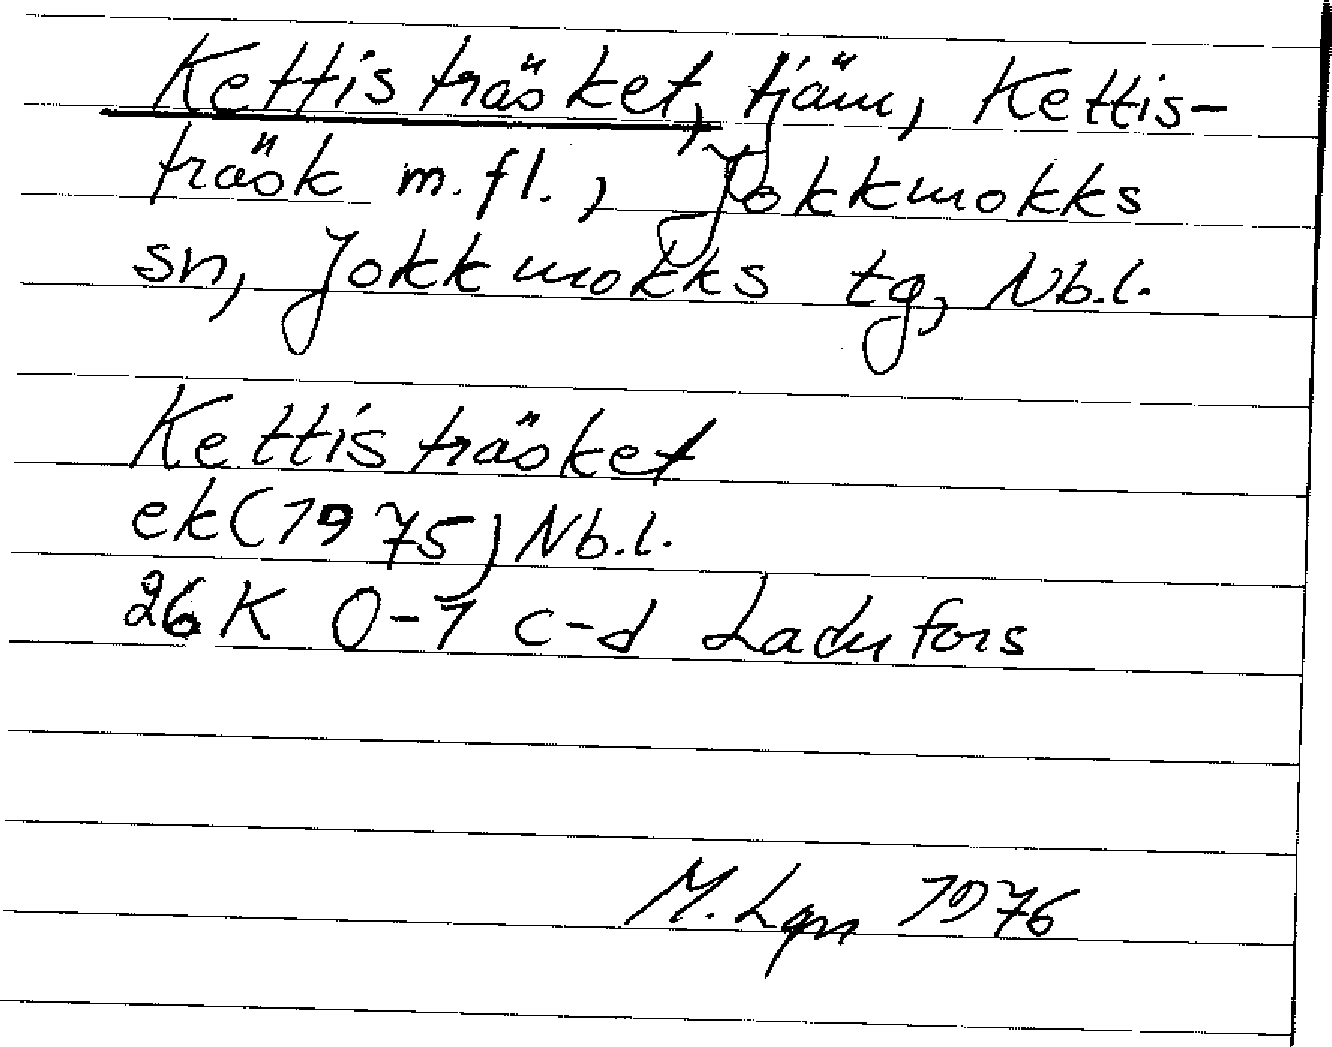 Kettisträsket, tjärn, Kettis-
träsk m.fl., Jokkmokks
sn, Jokkmokks tg, Nb.l.
Kettisträsket
ek(1975) Nb.l.
26K 0-1 c-d Ladufors
M. Lgn 1976